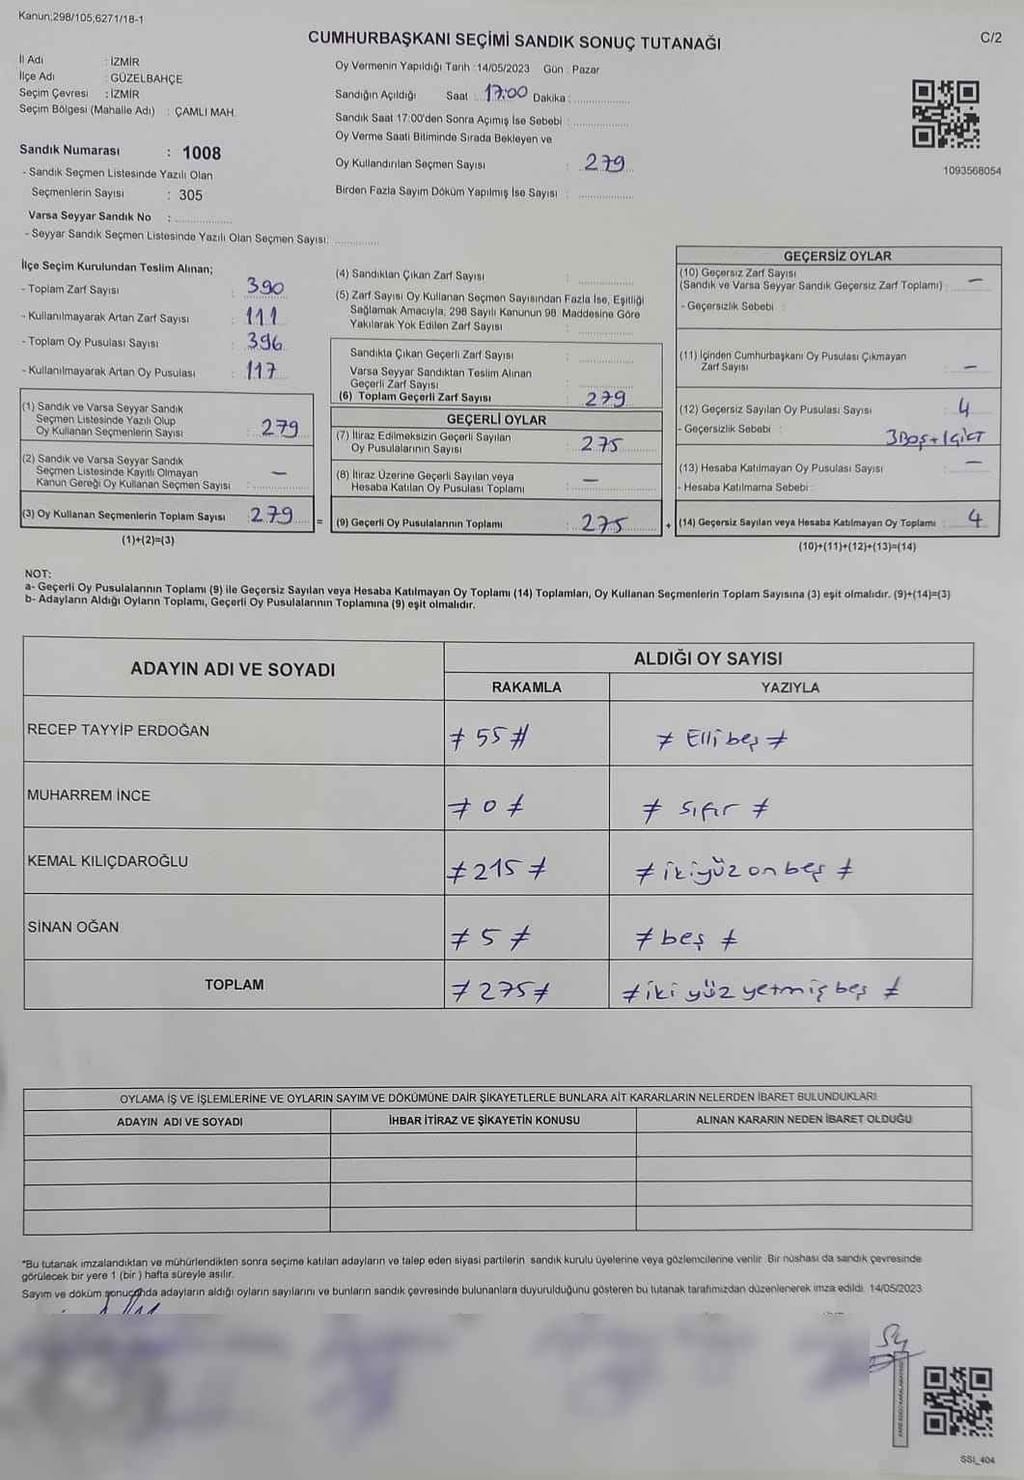 Kanun:298/105,6271/18-1
CUMHURBAŞKANI SEÇİMİ SANDIK SONUÇ TUTANAĞI
C/2
İl Adı : İZMİR
İlçe Adı : GÜZELBAHÇE
Seçim Çevresi : İZMİR
Seçim Bölgesi (Mahalle Adı) : ÇAMLI MAH.
Sandık Numarası : 1008
- Sandık Seçmen Listesinde Yazılı Olan
Seçmenlerin Sayısı : 305
Varsa Seyyar Sandık No :
- Seyyar Sandık Seçmen Listesinde Yazılı Olan Seçmen Sayısı:
Oy Vermenin Yapıldığı Tarih :14/05/2023 Gün : Pazar
Sandığın Açıldığı Saat : 17:00 Dakika :
Sandık Saat 17:00'den Sonra Açımış İse Sebebi :
Oy Verme Saati Bitiminde Sırada Bekleyen ve
Oy Kullandırılan Seçmen Sayısı : 279
Birden Fazla Sayım Döküm Yapılmış İse Sayısı :
1093568054
İlçe Seçim Kurulundan Teslim Alınan;
- Toplam Zarf Sayısı : 390
- Kullanılmayarak Artan Zarf Sayısı : 111
- Toplam Oy Pusulası Sayısı : 396
- Kullanılmayarak Artan Oy Pusulası : 117
(1) Sandık ve Varsa Seyyar Sandık
Seçmen Listesinde Yazılı Olup
Oy Kullanan Seçmenlerin Sayısı : 279
(2) Sandık ve Varsa Seyyar Sandık
Seçmen Listesinde Kayıtlı Olmayan
Kanun Gereği Oy Kullanan Seçmen Sayısı : —
(3) Oy Kullanan Seçmenlerin Toplam Sayısı : 279
(1)+(2)=(3)
(4) Sandıktan Çıkan Zarf Sayısı :
(5) Zarf Sayısı Oy Kullanan Seçmen Sayısından Fazla İse, Eşitliği
Sağlamak Amacıyla, 298 Sayılı Kanunun 98. Maddesine Göre
Yakılarak Yok Edilen Zarf Sayısı :
Sandıkta Çıkan Geçerli Zarf Sayısı :
Varsa Seyyar Sandıktan Teslim Alınan
Geçerli Zarf Sayısı :
(6) Toplam Geçerli Zarf Sayısı : 279
GEÇERLİ OYLAR
(7) İtiraz Edilmeksizin Geçerli Sayılan
Oy Pusulalarının Sayısı : 275
(8) İtiraz Üzerine Geçerli Sayılan veya
Hesaba Katılan Oy Pusulası Toplamı : —
= (9) Geçerli Oy Pusulalarının Toplamı : 275
GEÇERSİZ OYLAR
(10) Geçersiz Zarf Sayısı
(Sandık ve Varsa Seyyar Sandık Geçersiz Zarf Toplamı) : —
- Geçersizlik Sebebi :
(11) İçinden Cumhurbaşkanı Oy Pusulası Çıkmayan
Zarf Sayısı : —
(12) Geçersiz Sayılan Oy Pusulası Sayısı : 4
- Geçersizlik Sebebi : 3Boş+1Çift
(13) Hesaba Katılmayan Oy Pusulası Sayısı : —
- Hesaba Katılmama Sebebi :
+ (14) Geçersiz Sayılan veya Hesaba Katılmayan Oy Toplamı : 4
(10)+(11)+(12)+(13)=(14)
NOT:
a- Geçerli Oy Pusulalarının Toplamı (9) ile Geçersiz Sayılan veya Hesaba Katılmayan Oy Toplamı (14) Toplamları, Oy Kullanan Seçmenlerin Toplam Sayısına (3) eşit olmalıdır. (9)+(14)=(3)
b- Adayların Aldığı Oyların Toplamı, Geçerli Oy Pusulalarının Toplamına (9) eşit olmalıdır.
ADAYIN ADI VE SOYADI
ALDIĞI OY SAYISI
RAKAMLA YAZIYLA
RECEP TAYYİP ERDOĞAN ≠ 55 # ≠ Elli beş ≠
MUHARREM İNCE ≠ 0 ≠ ≠ sıfır ≠
KEMAL KILIÇDAROĞLU ≠ 215 ≠ ≠ ikiyüz on beş ≠
SİNAN OĞAN ≠ 5 ≠ ≠ beş ≠
TOPLAM ≠ 275 ≠ ≠ iki yüz yetmiş beş ≠
OYLAMA İŞ VE İŞLEMLERİNE VE OYLARIN SAYIM VE DÖKÜMÜNE DAİR ŞİKAYETLERLE BUNLARA AİT KARARLARIN NELERDEN İBARET BULUNDUKLARI
ADAYIN ADI VE SOYADI İHBAR İTİRAZ VE ŞİKAYETİN KONUSU ALINAN KARARIN NEDEN İBARET OLDUĞU
*Bu tutanak imzalandıktan ve mühürlendikten sonra seçime katılan adayların ve talep eden siyasi partilerin sandık kurulu üyelerine veya gözlemcilerine verilir. Bir nüshası da sandık çevresinde
görülecek bir yere 1 (bir ) hafta süreyle asılır.
Sayım ve döküm sonucunda adayların aldığı oyların sayılarını ve bunların sandık çevresinde bulunanlara duyurulduğunu gösteren bu tutanak tarafımızdan düzenlenerek imza edildi. 14/05/2023
SSI_404